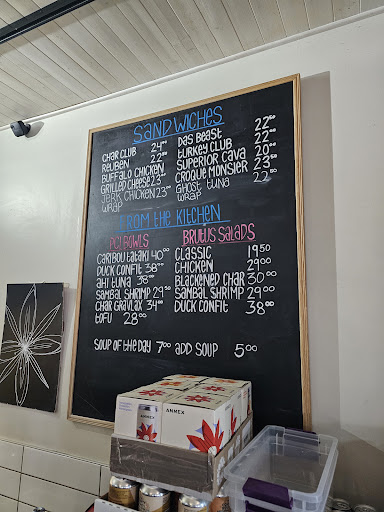 SANDWICHES
CHAR CLUB 24⁰⁰
REUBEN 22⁰⁰
BUFFALO CHICKEN
GRILLED CHEESE 23
JERK CHICKEN 23⁰⁰
WRAP
DAS BEAST 22⁵⁰
TURKEY CLUB 22⁰⁰
SUPERIOR CAVA 20⁰⁰
CROQUE MONSIER 23⁵⁰
GHOST TUNA 22⁵⁰
WRAP
FROM THE KITCHEN
POI BOWLS
CARIBOU TATAKI 40⁰⁰
DUCK CONFIT 38⁰⁰
AHI TUNA 38⁰⁰
SAMBAL SHRIMP 29⁵⁰
CHAR GRAVLAX 34⁰⁰
TOFU 28⁰⁰
BRUTUS SALADS
CLASSIC 19⁵⁰
CHICKEN 29⁰⁰
BLACKENED CHAR 30⁰⁰
SAMBAL SHRIMP 29⁰⁰
DUCK CONFIT 38⁰⁰
SOUP OF THE DAY 7⁰⁰ ADD SOUP 5⁰⁰
ANNEX
ANNEX